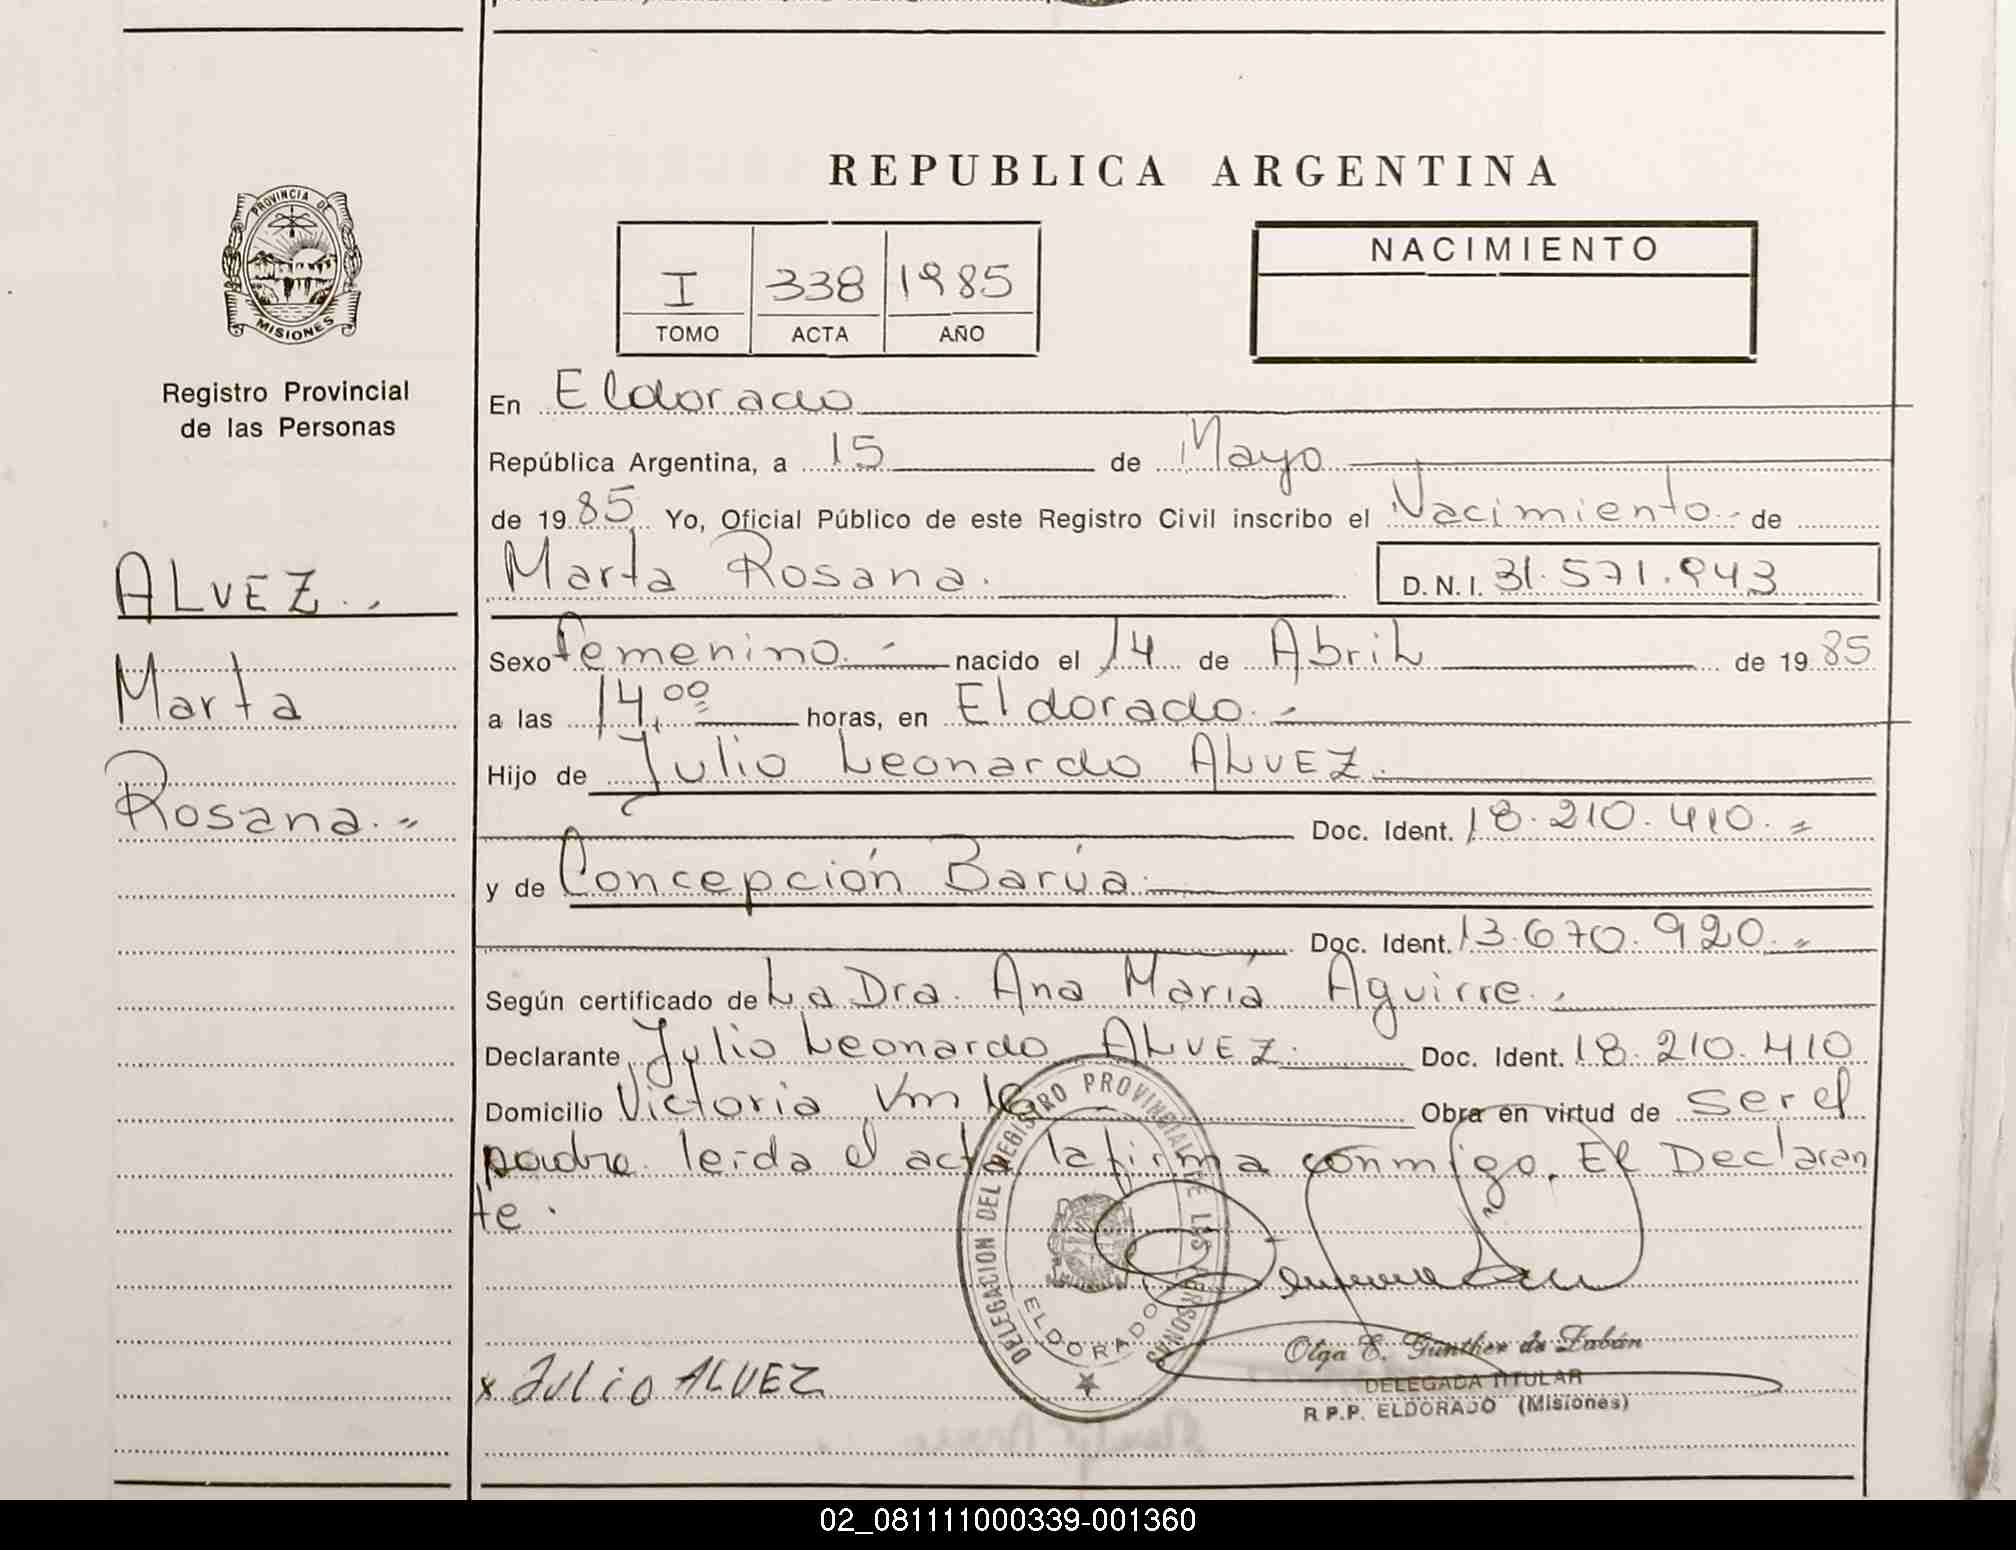 PROVINCIA DE
MISIONES
Registro Provincial
de las Personas
ALVEZ.
Marta
Rosana.
REPUBLICA ARGENTINA
I 338 1985
TOMO ACTA AÑO
NACIMIENTO
En Eldorado
República Argentina, a 15 de Mayo
de 1985 Yo, Oficial Público de este Registro Civil inscribo el Nacimiento de
Marta Rosana. D.N.I. 31.571.943
Sexo Femenino.- nacido el 14 de Abril de 1985
a las 14,00 horas, en Eldorado.-
Hijo de Julio Leonardo ALVEZ.
Doc. Ident. 18.210.410.=
y de Concepción Barúa.
Doc. Ident. 13.670.920.=
Según certificado de La Dra. Ana María Aguirre.
Declarante Julio Leonardo ALVEZ. Doc. Ident. 18.210.410
Domicilio Victoria Km 16 Obra en virtud de ser el
padre. leida el acta la firma conmigo. El Declaran
te.
DELEGACION DEL REGISTRO PROVINCIAL DE LAS PERSONAS
ELDORADO
x Julio ALVEZ
Olga E. Gunther de Zabán
DELEGADA TITULAR
R.P.P. ELDORADO (Misiones)
02_081111000339-001360